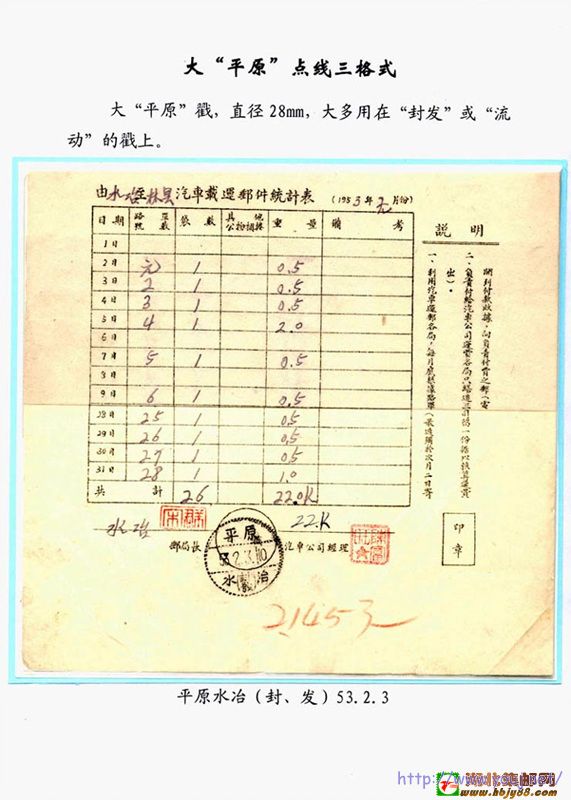 大“平原”点线三格式
大“平原”戳，直径28mm，大多用在“封发”或“流
动”的戳上。
由水冶至林县汽車載運郵件統計表 (1953年元月份)
日期 路單號數 袋數 其他公物捆綑 重量 備考
1日
2日 元 1 0.5
3日 2 1 0.5
4日 3 1 0.5
5日 4 1 2.0
6日
7日 5 1 0.5
8日
9日 6 1 0.5
28日 25 1 0.5
29日 26 1 0.5
30日 27 1 0.5
31日 28 1 1.0
共計 26 22.0K
水冶 22.K
郵局長 汽車公司經理
說明
一、利用汽車運郵各局，每月底根據路單
二、負責付給汽車公司運費各局
印章
平原
53.2.3
水冶
21453
平原水冶（封、发）53.2.3
湖北集邮网
www.hbjy88.com